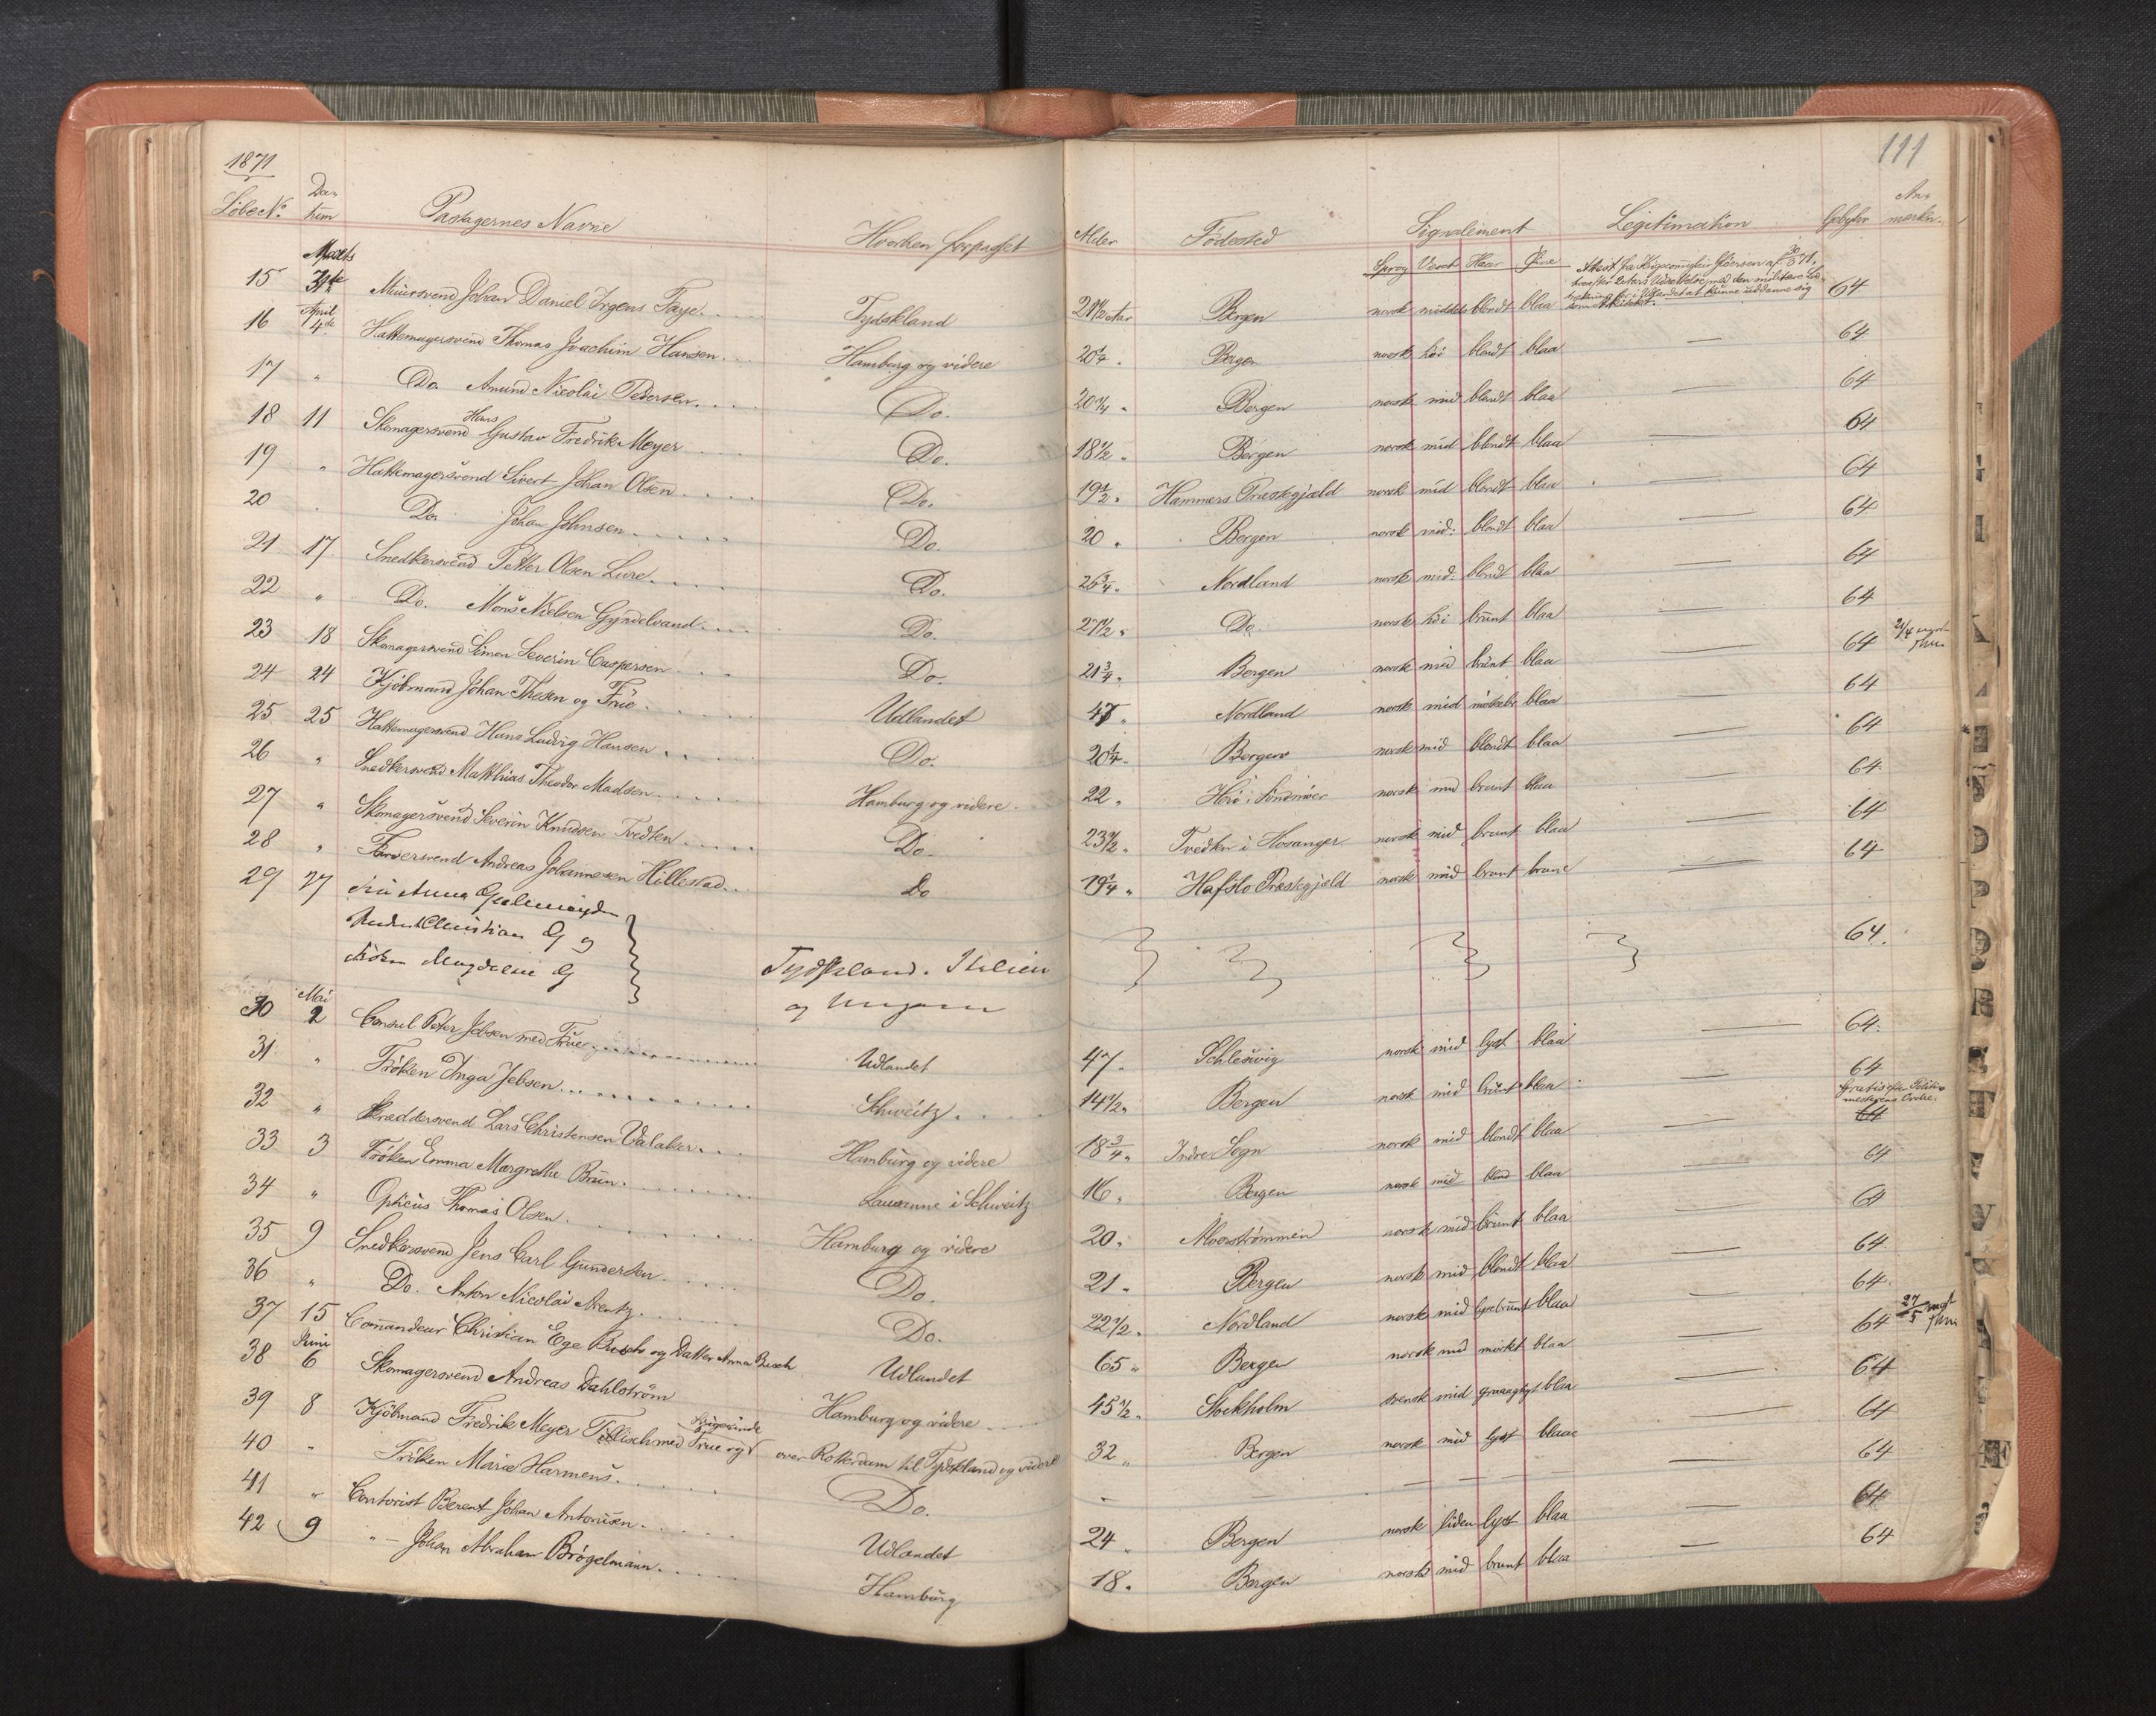 1871
111
LøbeNo. Datum Passagernes Navne Hvorhen forpasset Alder Fødested Signalement Legitimation Gebyhr Anmærkn.
Sprog Vext Haar Øine
Marts
15 31te Muursvend Johan Daniel Irgens Faye. Tydskland 21 1/2 Aar Bergen norsk middels blondt blaa 64
April
16 4de Hattemagersvend Thomas Joachim Hansen Hamburg og videre 20 1/4 " Bergen norsk høi blondt blaa — 64
17 " Do. Amund Nicolai Pedersen. Do. 20 1/4 " Bergen norsk mid blondt blaa — 64
18 11 Skomagersvend Hans Gustav Fredrik Meyer Do. 18 1/2 " Bergen norsk mid blondt blaa — 64
19 " Hattemagersvend Sivert Johan Olsen Do. 19 1/2 " Hammers Præstegjæld norsk mid blondt blaa — 64
20 " Do. Johan Johnsen Do. 20 " Bergen norsk mid: blondt blaa — 64
21 17 Snedkersvend Petter Olsen Lure. Do. 26 3/4 " Nordland norsk mid: blondt blaa — 64
22 " Do. Mons Nielsen Gyndelvand Do. 27 1/2 " Do. norsk høi brunt blaa — 64
23 18 Skomagersvend Simon Severin Caspersen Do. 21 3/4 " Bergen norsk mid brunt blaa — 64
24 24 Kjöbmand Johan Thesen og Frue. Udlandet 47 " Nordland norsk mid blaa — 64
25 25 Hattemagersvend Hans Ludvig Hansen. Do. 20 1/4 " Bergen norsk mid blondt blaa — 64
26 " Snedkersvend Matthias Theodor Madsen Hamburg og videre 22 " Herö i Söndmöer norsk mid brunt blaa — 64
27 " Skomagersvend Severin Knudsen Tvedten Do. 23 1/2 " Tvedten i Hosanger norsk mid brunt blaa — 64
28 " Farversvend Andreas Johannesen Hillestad Do 19 1/4 " Hafslo Præstegjæld norsk mid brunt brune — 64
29 27 Fru Anna
Christian G og
Frøken Magdalene G
Tydskland. Italien
og Ungarn
64.
Mai
30 2 Consul Peter Jebsen med Frue Udlandet 47 " Schlesvig norsk mid lyst blaa — 64.
31 " Frøken Inga Jebsen Schweitz. 14 1/2 " Bergen norsk mid brunt blaa — 64
Gratis efter Politimesterens Ordre.
32 " Skræddersvend Lars Christensen Valaker. Hamburg og videre 18 3/4 " Indre Sogn norsk mid blondt blaa — 64
33 3 Frøken Emma Margrethe Brun. Lausanne i Schweitz 16 " Bergen norsk mid blond blaa — 64
34 " Opticus Thomas Olsen. Hamburg og videre 20 " Alverströmmen norsk mid brunt blaa — 64
35 9 Snedkersvend Jens Carl Gundersen. Do. 21 " Bergen norsk mid blondt blaa — 64
36 " Do. Anton Nicolai Arentz. Do. 22 1/2 " Nordland norsk mid lysebrunt blaa — 64
37 15 Comandeur Christian Ege Busch og Datter Anna Busch Udlandet 65 " Bergen norsk mid mörkt blaa — 64
Juni
38 6 Skomagersvend Andreas Dahlström Hamburg og videre 45 1/2 " Stockholm svensk mid blaa — 64
39 8 Kjöbmand Fredrik Meyer med Frue og over Rotterdam til Tydskland og videre 32 " Bergen norsk mid lyst blaae — 64
40 " Fröken Marie Harmens. Do. — — — — — 64
41 " Contorist Berent Johan Antonisen. Udlandet 24 " Bergen norsk liden lyst blaa — 64
42 9 " — Johan Abraham Brögelmann. Hamburg 18 " Bergen norsk mid brunt blaa — 64